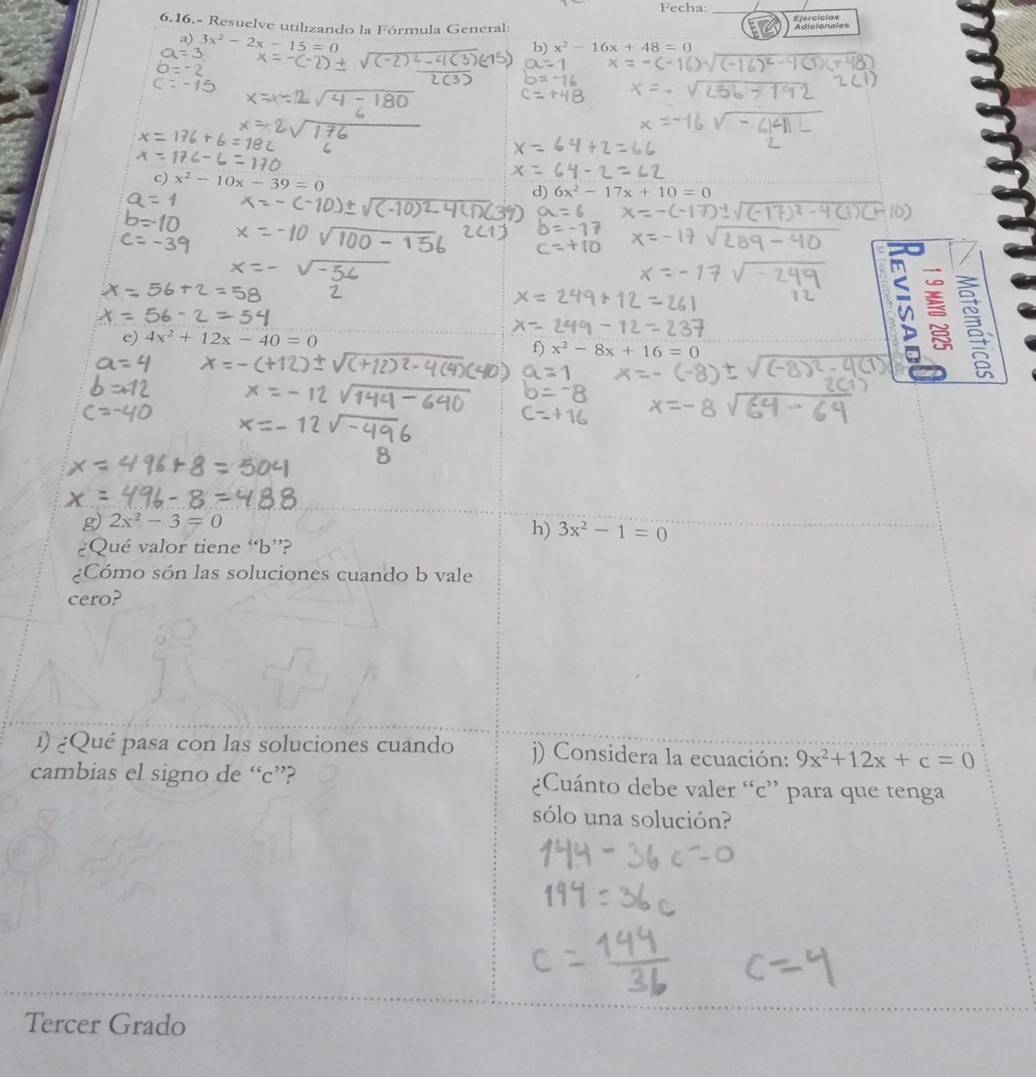 Fecha:
Ejercicios
Adicionales
6.16.- Resuelve utilizando la Fórmula General:
a) 3x² - 2x - 15 = 0
a=3 x=-(-2) ± √(-2)²-4(3)(-15)
b=-2 2(3)
c=-15
x=-2√4-180
6
x=-2√176
6
x=176+6=182
x=176-6=170
b) x² - 16x + 48 = 0
a=1 x=-(-16)√(-16)²-4(1)(+48)
b=-16 2(1)
c=+48 x=-√256-192
x=-16√-64
2
x=64+2=66
x=64-2=62
c) x² - 10x - 39 = 0
a=1 x=-(-10)±√(-10)²-4(1)(39)
b=-10 2(1)
c=-39 x=-10√100-156
x=-√-56
2
x=56+2=58
x=56-2=54
d) 6x² - 17x + 10 = 0
a=6 x=-(-17)±√(-17)²-4(1)(-10)
b=-17
c=+10 x=-17√289-40
x=-17√-249
12
x=249+12=261
x=249-12=237
Matemáticas
19 MAYO 2025
REVISADO
e) 4x² + 12x - 40 = 0
a=4 x=-(+12)±√(+12)²-4(4)(40)
b=+12 x=-12√144-640
c=-40 x=-12√-496
8
x=496+8=504
x=496-8=488
f) x² - 8x + 16 = 0
a=1 x=-(-8)±√(-8)²-4(1)
b=-8 2(1)
c=+16 x=-8√64-64
g) 2x² - 3 = 0
¿Qué valor tiene “b”?
¿Cómo són las soluciones cuando b vale
cero?
h) 3x² - 1 = 0
i) ¿Qué pasa con las soluciones cuando
cambias el signo de “c”?
j) Considera la ecuación: 9x²+12x + c = 0
¿Cuánto debe valer “c” para que tenga
sólo una solución?
144-36c=0
144=36c
c=144/36 c=4
Tercer Grado